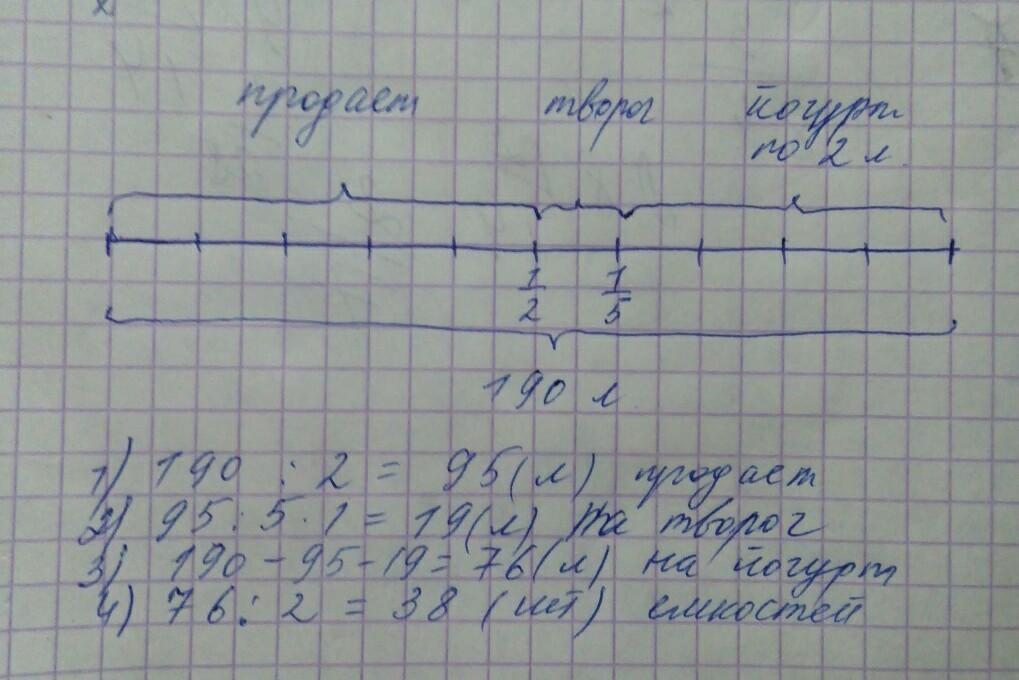 продает творог йогурт
по 2 л.
1/2 1/5
190 л
1) 190 : 2 = 95 (л) продает
2) 95 : 5 · 1 = 19 (л) На творог
3) 190 - 95 - 19 = 76 (л) на йогурт
4) 76 : 2 = 38 (шт) емкостей